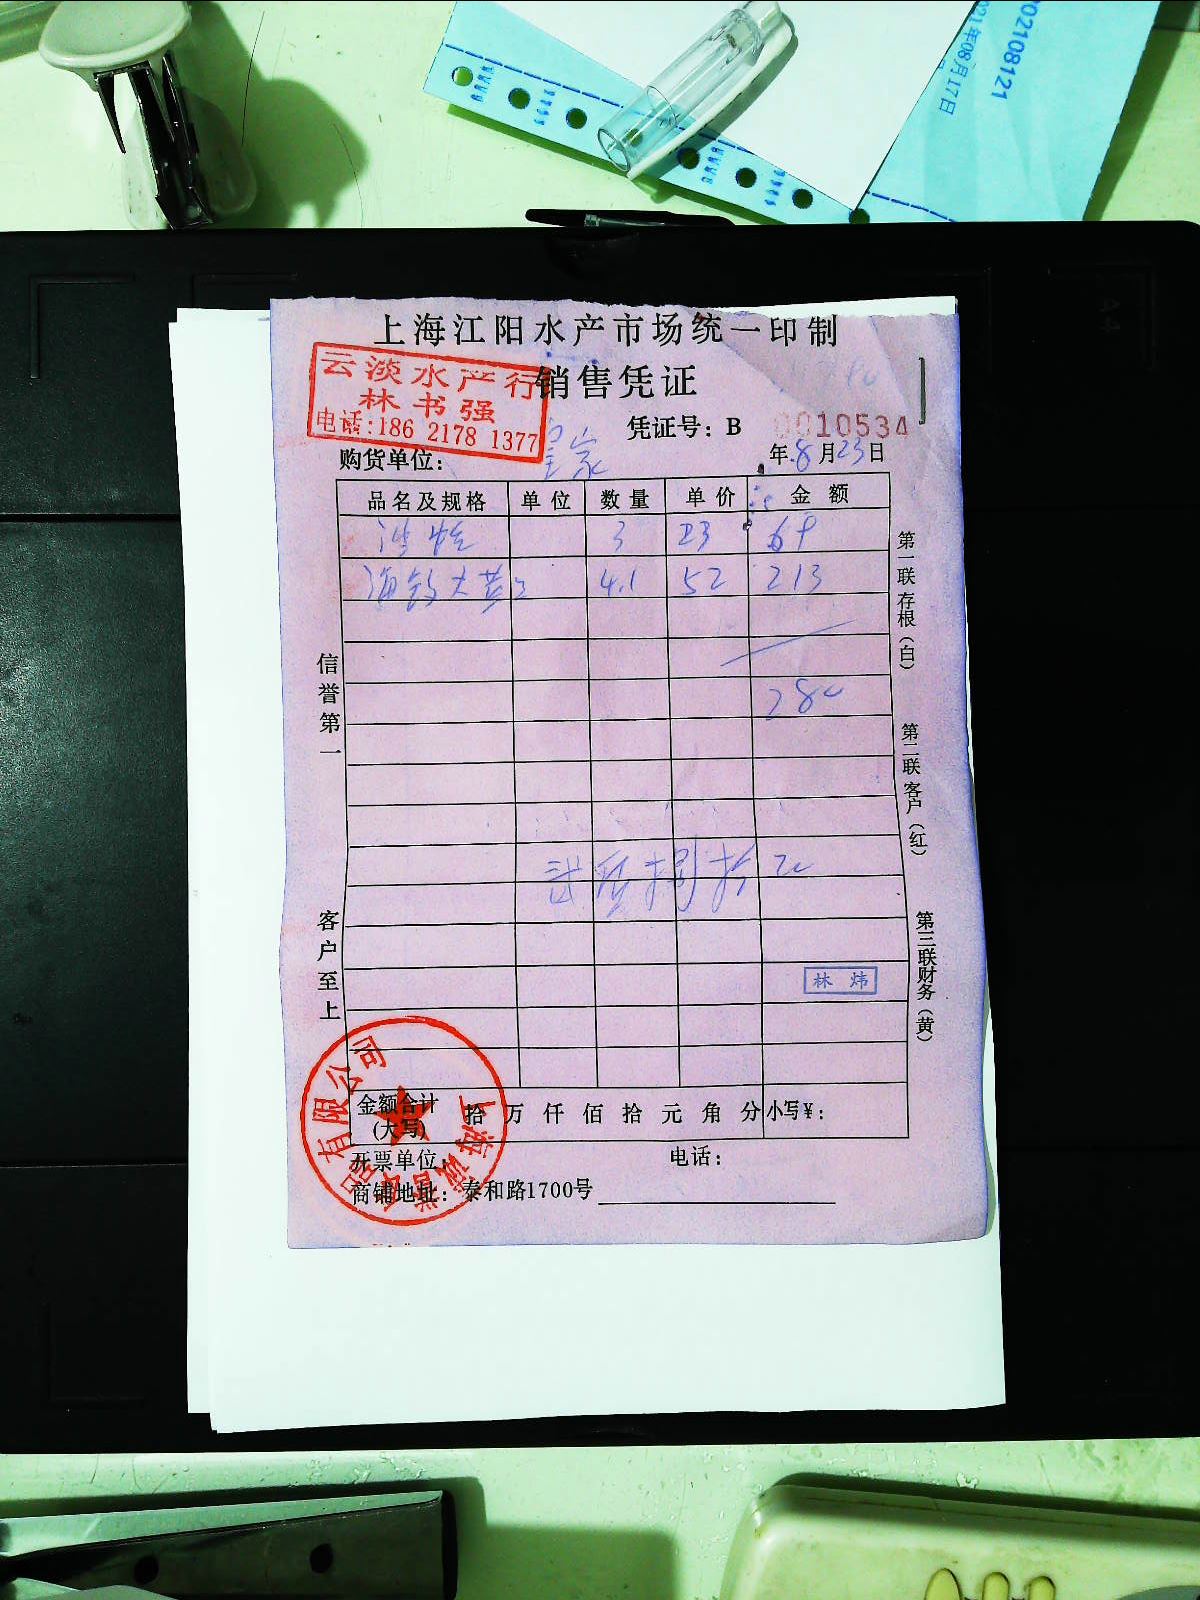 202108121
2021年08月17日
上海江阳水产市场统一印制
云淡水产行
林书强
电话:186 2178 1377
销售凭证
凭证号：B 0010534
购货单位： 皇家
年 8 月 23 日
品名及规格 单位 数量 单价 金额
3 23 69
4.1 52 213
280
贰佰捌拾元
信誉第一
客户至上
第一联存根（白）
第二联客户（红）
第三联财务（黄）
林炜
金额合计(大写) 拾 万 仟 佰 拾 元 角 分 小写¥：
开票单位： 电话：
商铺地址：泰和路1700号
上海诚普食品有限公司